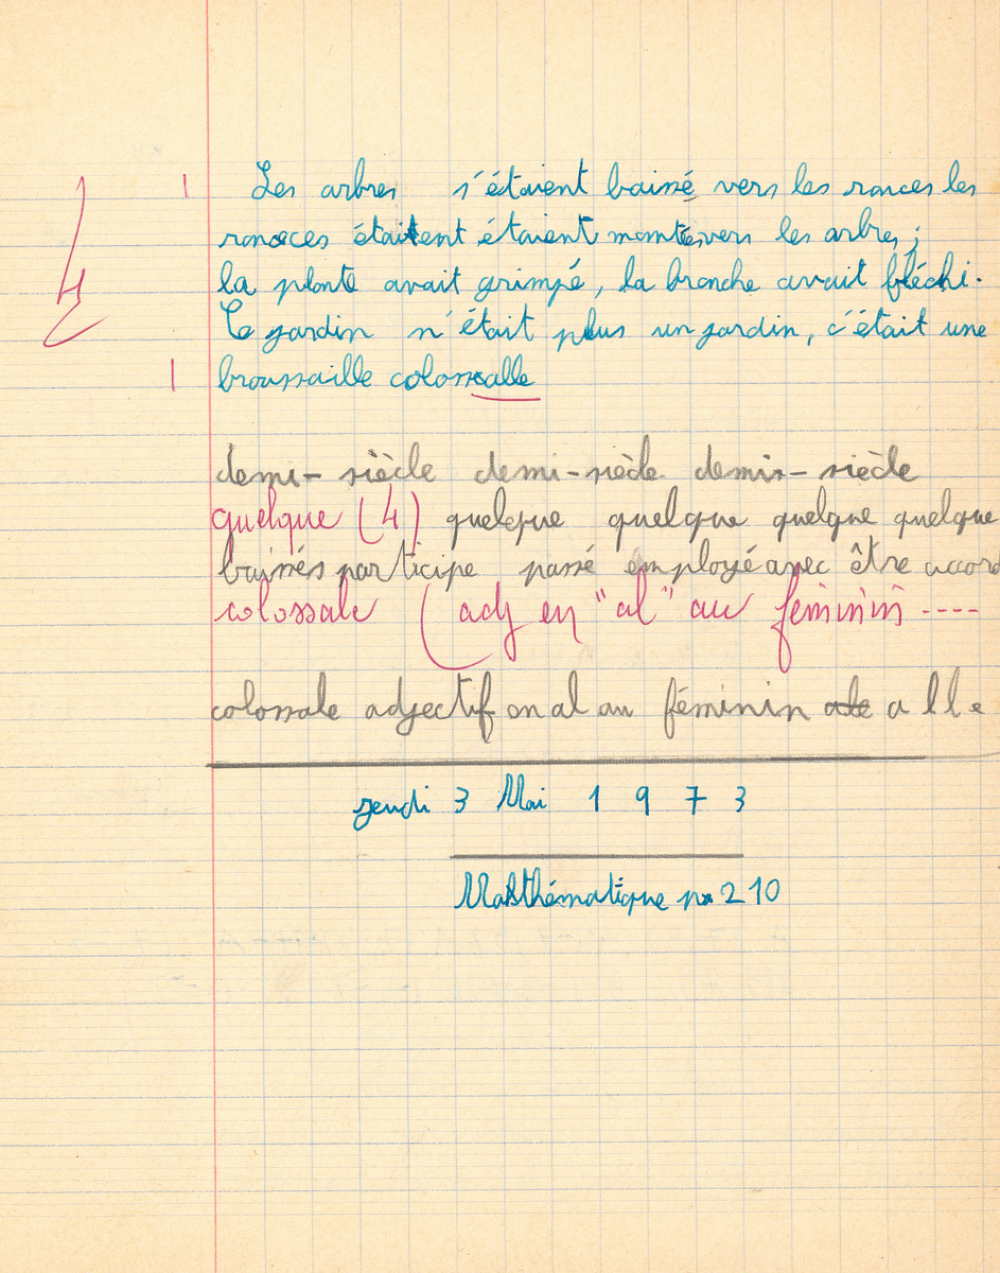 Les arbres s'étaient baissé vers les ronces les
ronces étaitent étaient montées vers les arbres ;
la plante avait grimpé, la branche avait fléchi.
Le jardin n'était plus un jardin, c'était une
broussaille colossalle
demi-siècle demi-siècle demis-siècle
quelque (4) quelque quelque quelque quelque
baissés participe passé employé avec être accord
colossale (adj en "al" au féminin ----
colossale adjectif en al au féminin ale alle
jeudi 3 Mai 1973
Mathématique n° 210